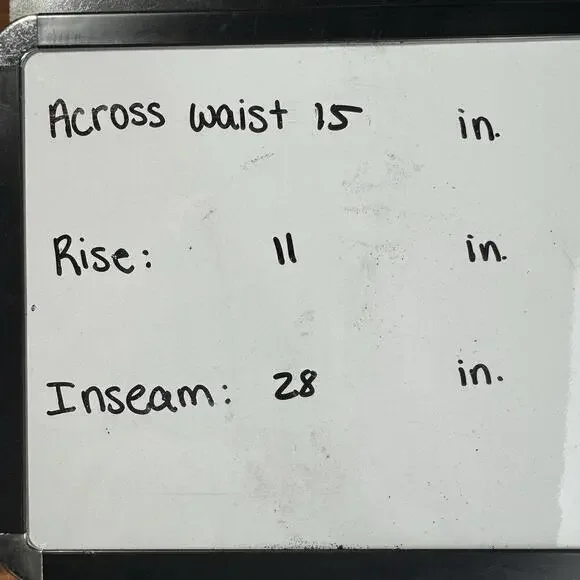 Across waist 15 in.
Rise: 11 in.
Inseam: 28 in.